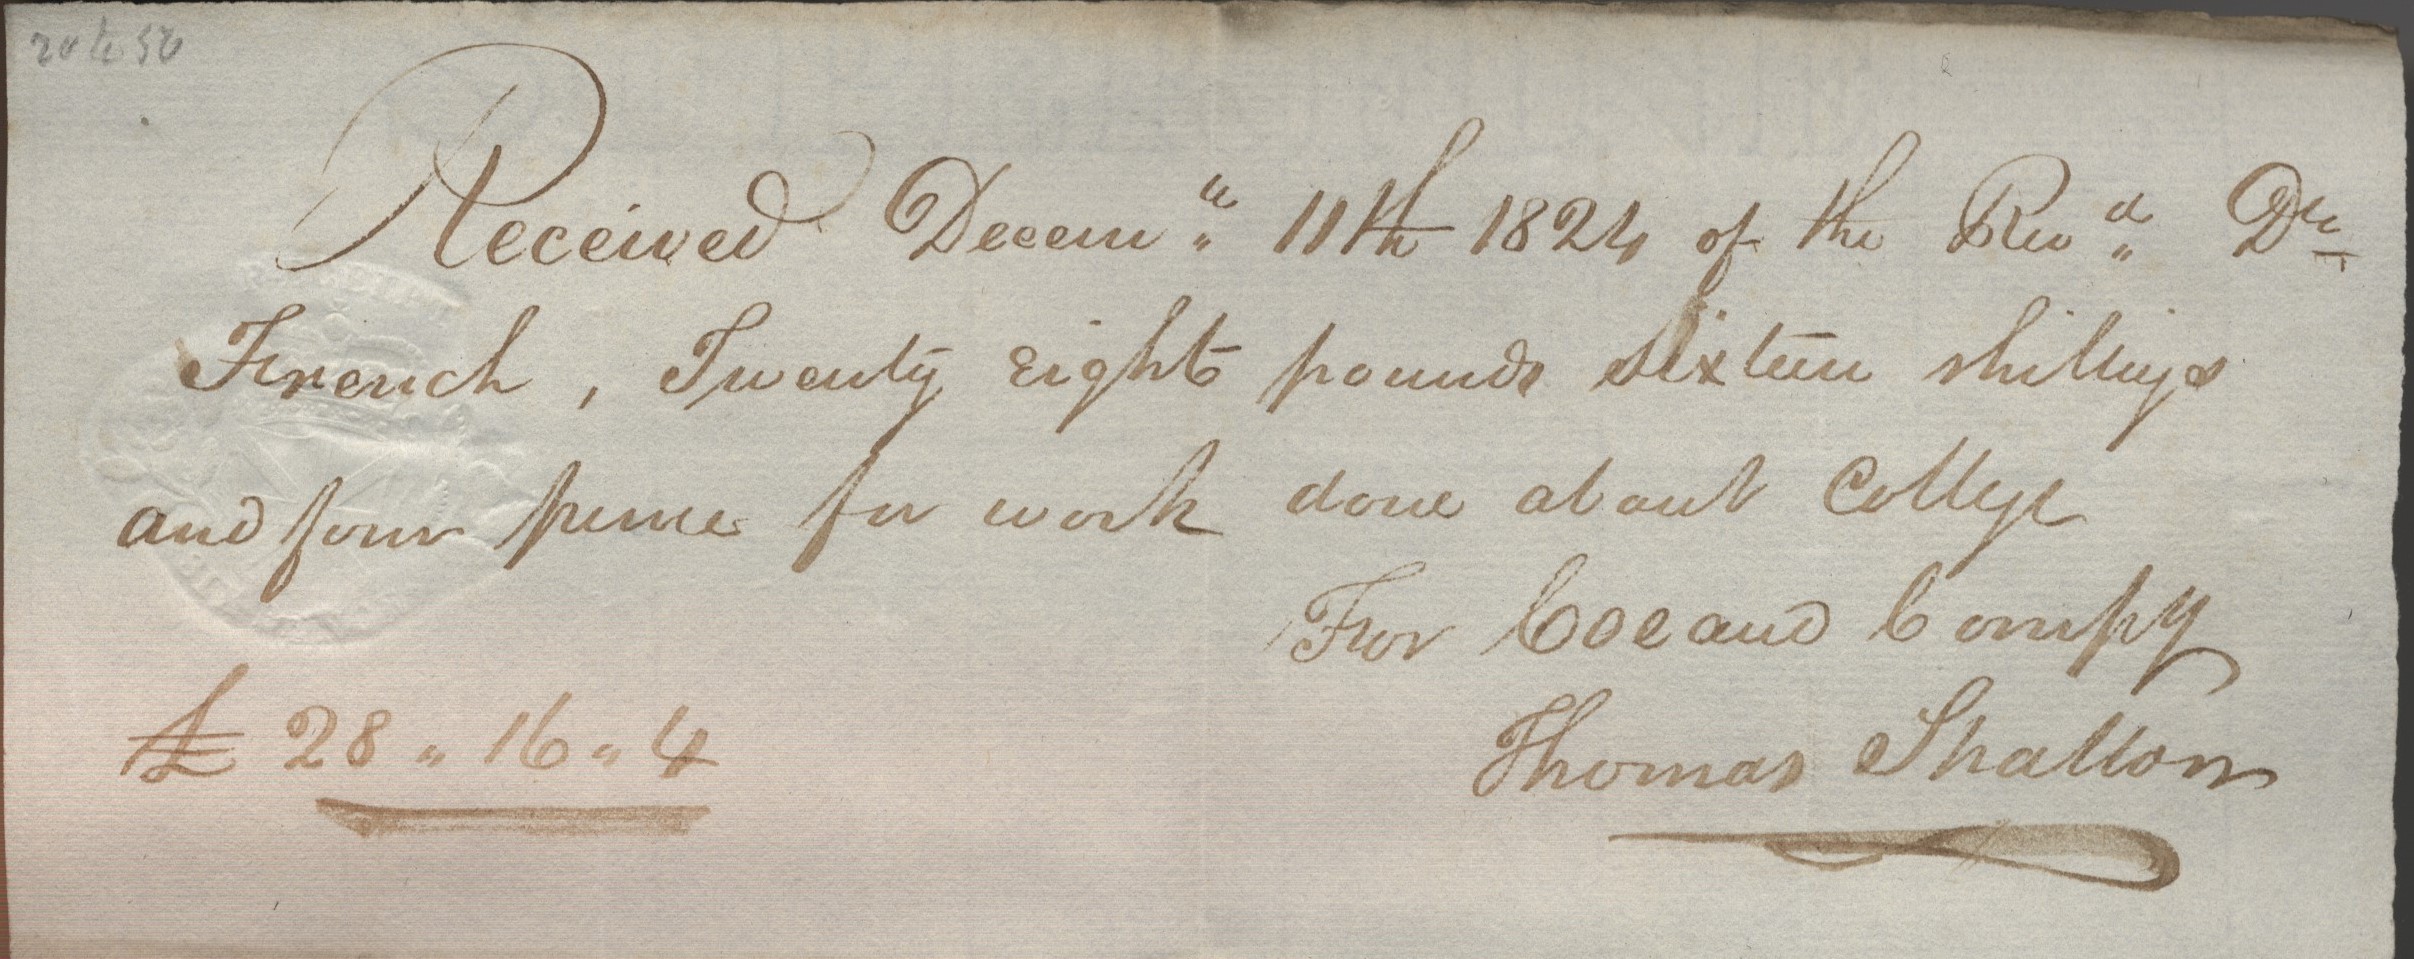 Received Decem^r 11th 1824 of the Rev^d D^r
French, Twenty Eight pounds sixteen shillings
and four pence for work done about College
For Coe and Compy
£ 28 " 16 " 4
Thomas Shallow